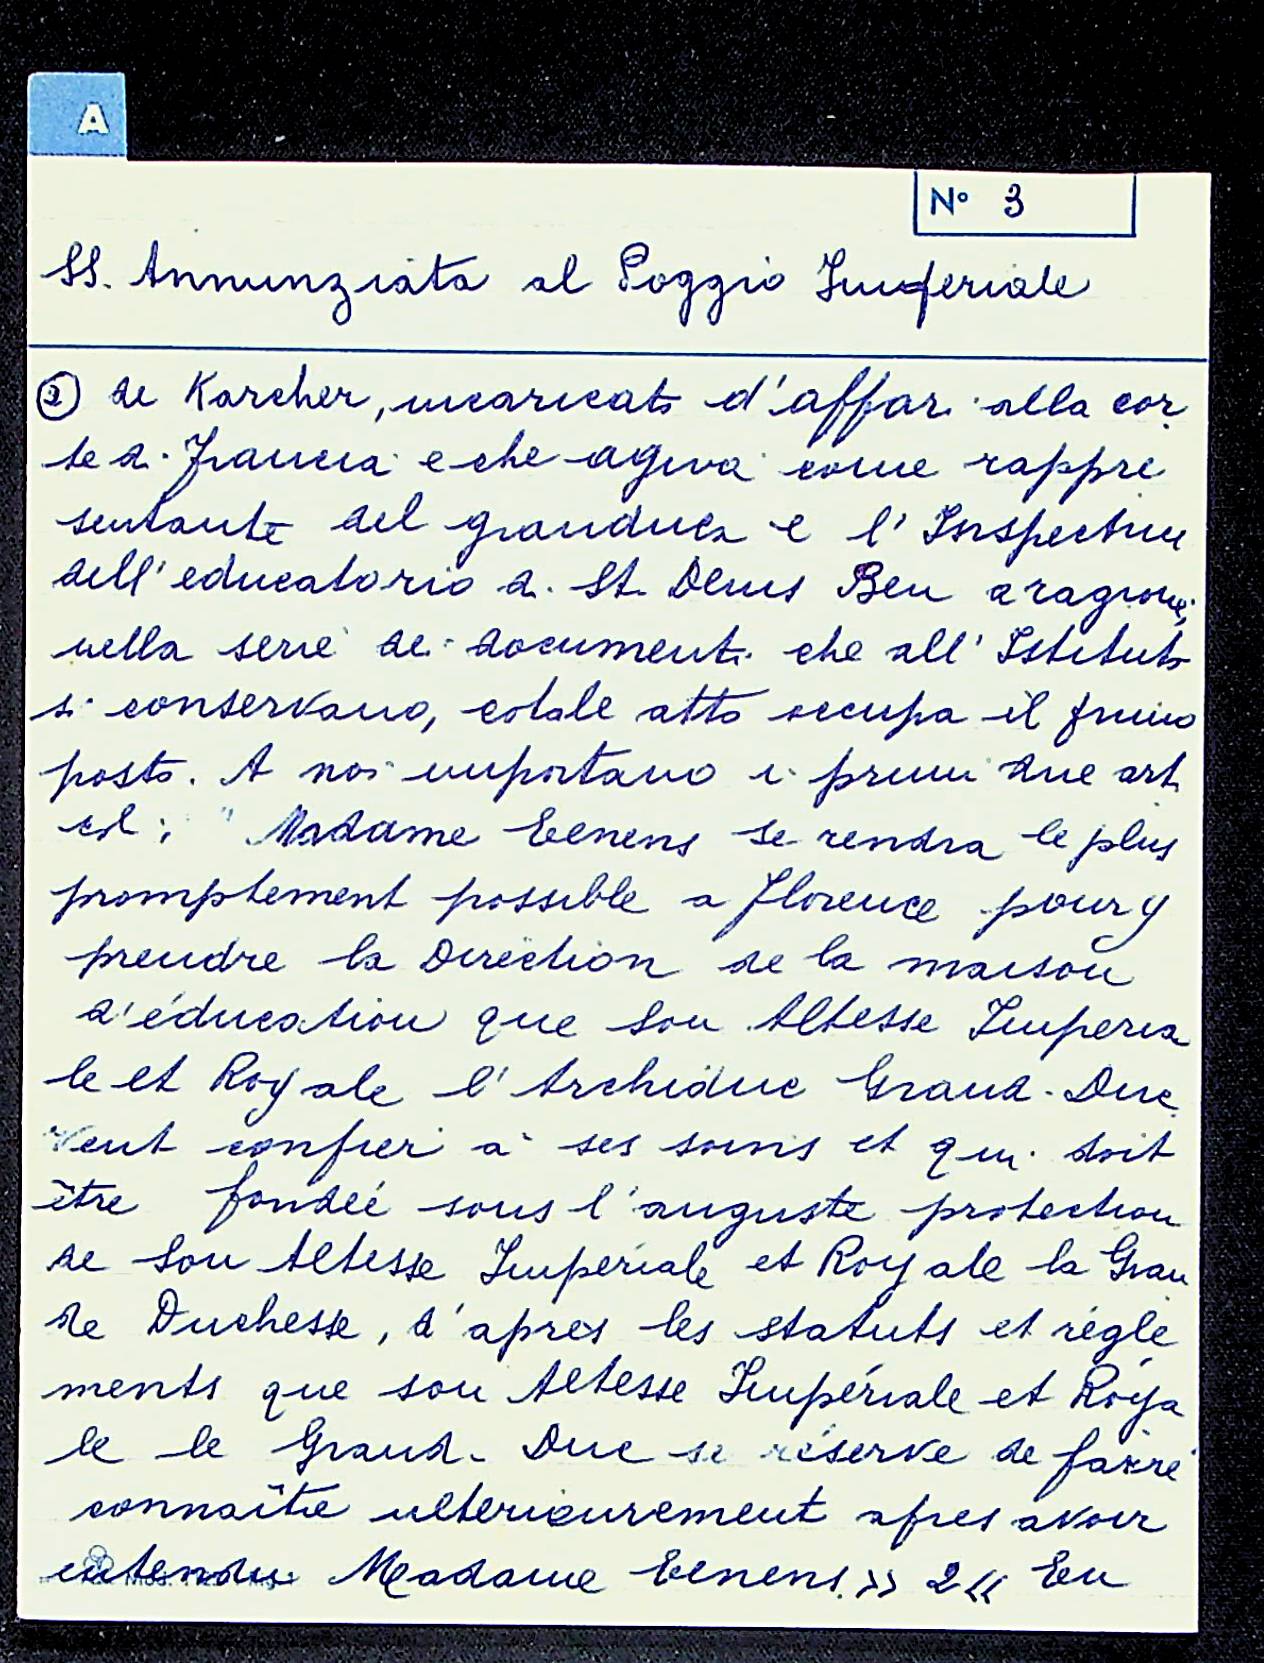 A
N° 3
SS. Annunziata al Poggio Imperiale
② de Karcher, incaricato d'affari alla cor
te di Francia e che agiva come rappre
sentante del granduca e l'Inspectrice
dell'educatorio di St. Denis Ben a ragione,
nella serie dei documenti che all'Istituto
si conservano, cotale atto occupa il primo
posto. A noi importano i primi due arti
coli: " Madame Eenens se rendra le plus
promptement possible a Florence pour y
prendre la Direction de la maison
d'éducation que Son Altesse Imperia
le et Royale l'Archiduc Grand-Duc
veut confier à ses soins et qui doit
être fondée sous l'auguste protection
de Son Altesse Impériale et Royale la Gran
de Duchesse, d'apres les statuts et régle
ments que son Altesse Impériale et Roya
le le Grand-Duc se réserve de faire
connaître ulterieurement apres avoir
entendu Madame Eenens.>> 2<< En